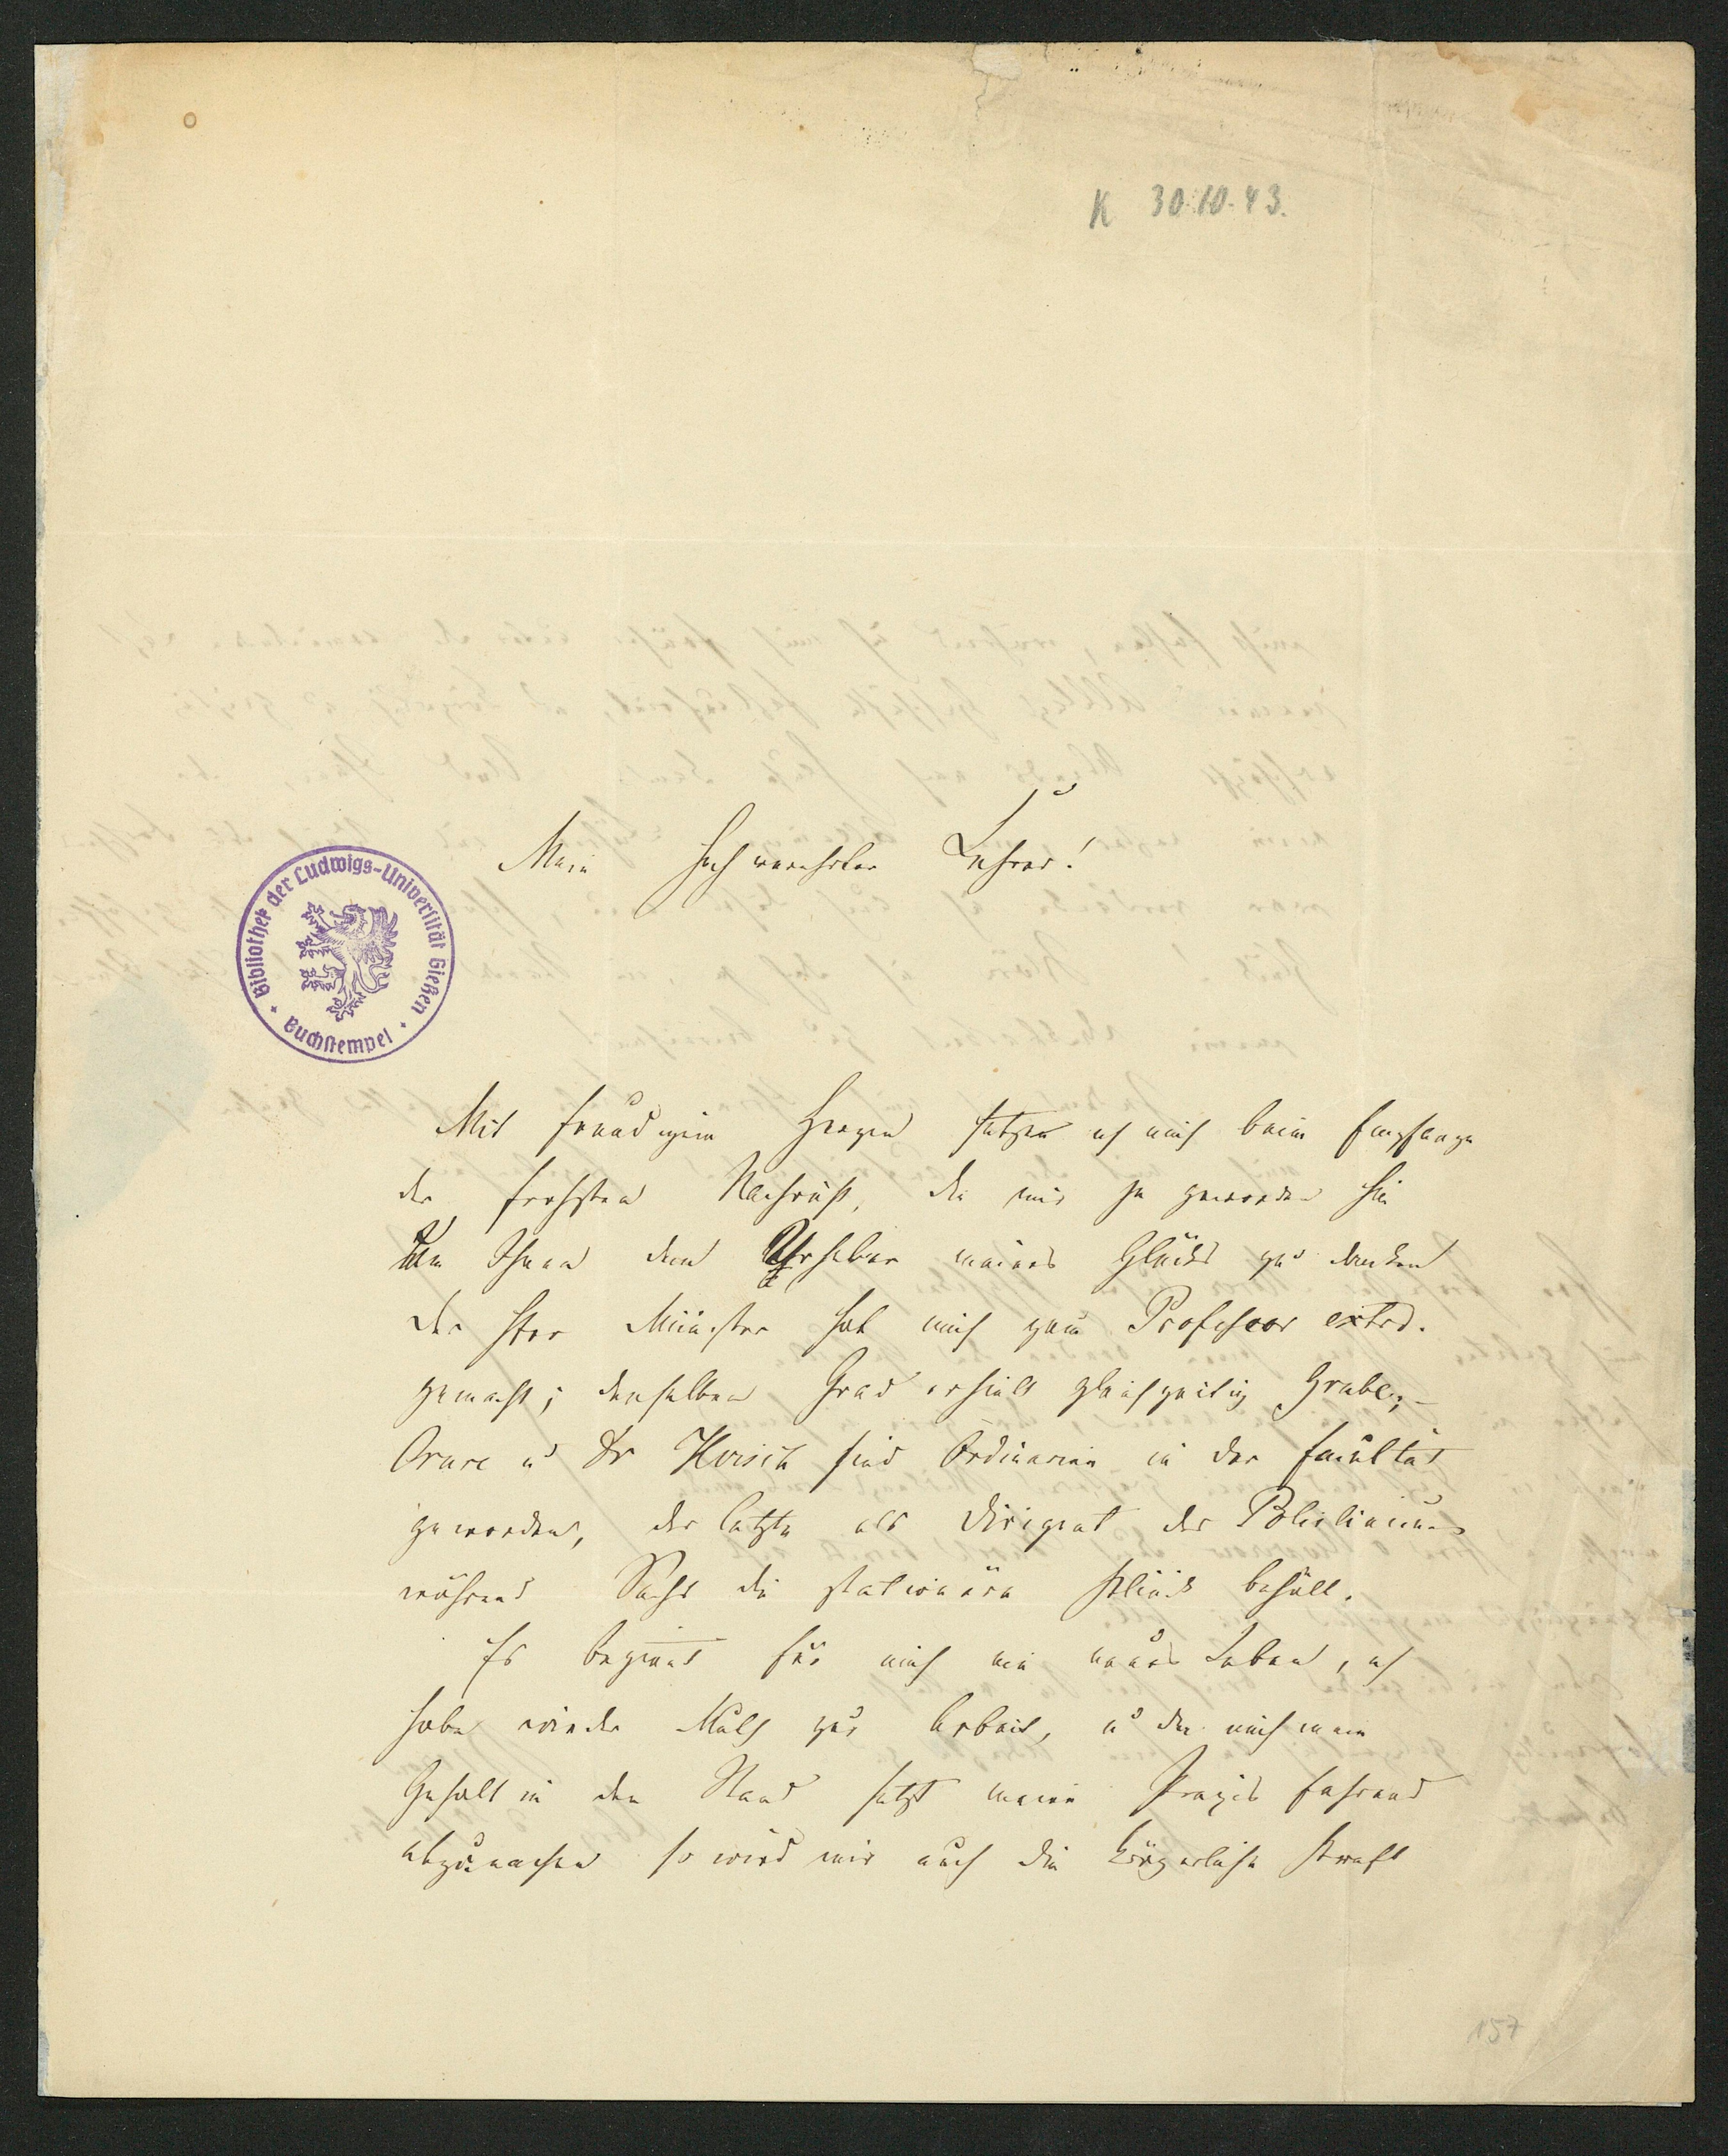 K 30.10.43.
Mein hochverehrter Lehrer!
Bibliothek der Ludwigs-Universität Gießen
Buchstempel
Mit freudigem Herzen setze ich mich beim Empfange
der frohsten Nachricht, die mir je geworden hin
um Ihnen dem Urheber meines Glücks zu danken
Der Herr Minister hat mich zum Professor extrd.
gemacht; denselben Grad erhielt gleichzeitig Grube,
und Dr Hirsch sind Ordinarien in der Facultät
geworden, der letzte als Dirigent des Policlinicums
während Sachs die stationäre Klinik behält.
Es beginnt für mich ein neues Leben, ich
habe wieder Muth zur Arbeit, u da mich mein
Gehalt in den Stand setzt meine Praxis fahrend
abzumachen so wird mir auch die körperliche Kraft
157